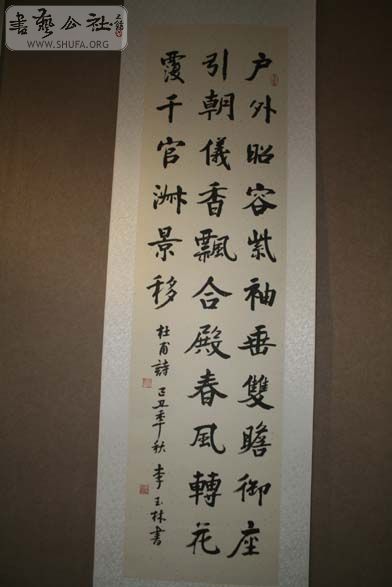 書藝公社
WWW.SHUFA.ORG
户外昭容紫袖垂雙瞻御座
引朝儀香飄合殿春風轉花
覆千官淋景移
杜甫詩 己丑年秋 李玉林書